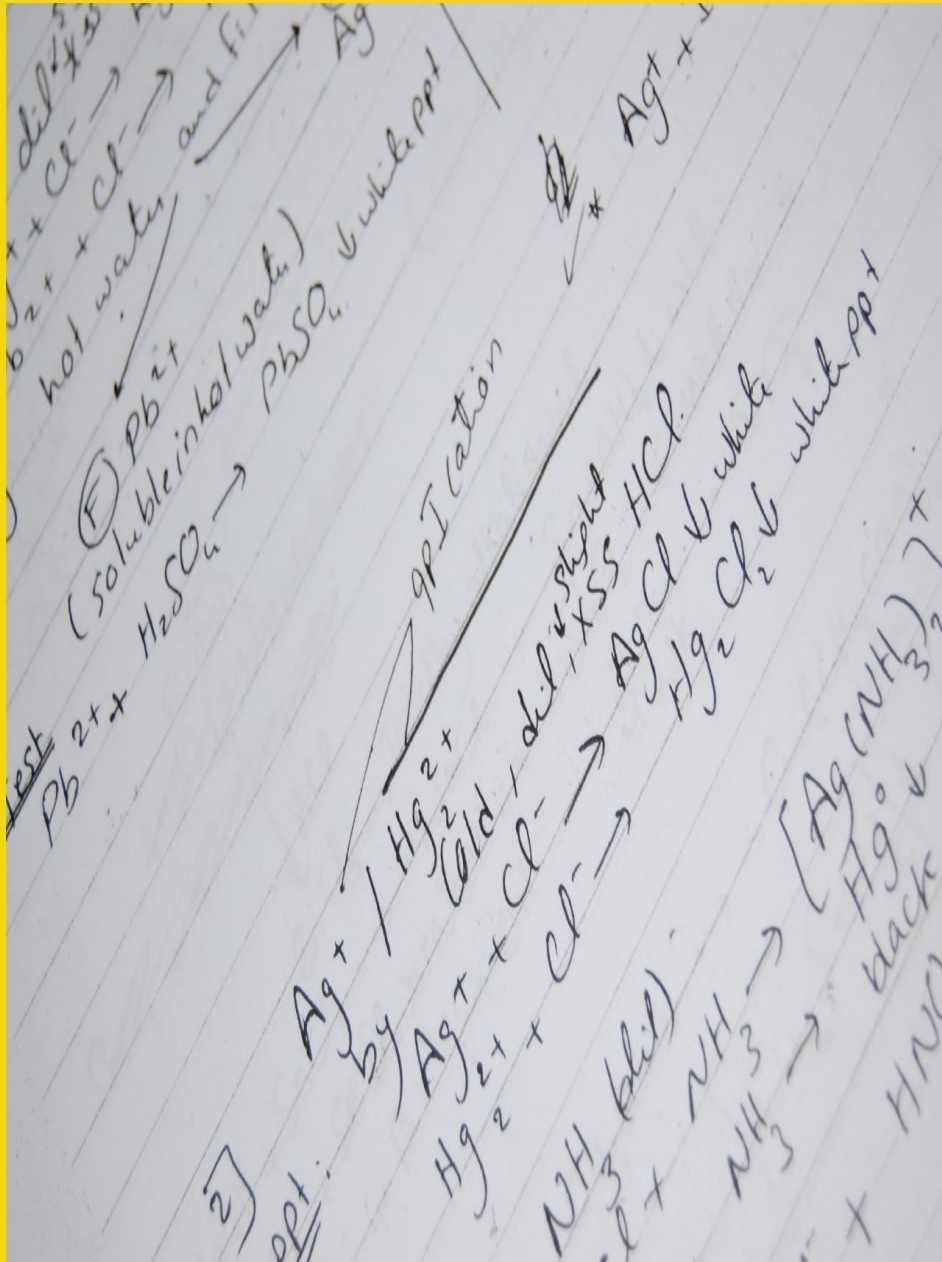 dil
+ Cl⁻ →
2+ + Cl⁻ →
hot water and Ag
(F) Pb²⁺
(soluble in hot water)
test
Pb²⁺ + H₂SO₄ → PbSO₄ ↓ white ppt
gp I cation
2] Ag⁺ / Hg₂²⁺
ppt. by cold, dil, slight xss HCl.
Ag⁺ + Cl⁻ → AgCl ↓ white
Hg₂²⁺ + Cl⁻ → Hg₂Cl₂ ↓ white ppt
NH₃ (dil).
+ NH₃ → [Ag(NH₃)₂]⁺
l + NH₃ → Hg° ↓
black
+
* Ag⁺ +